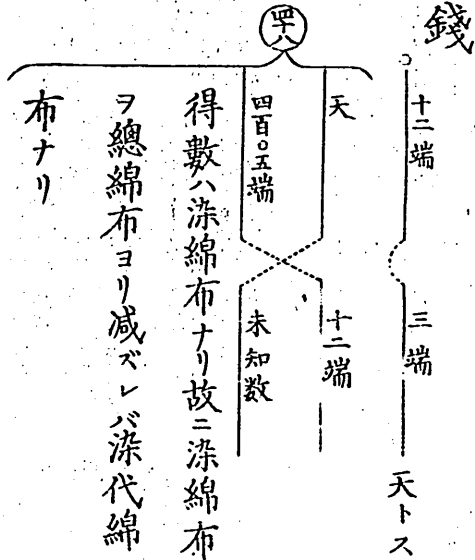 錢
十二端 三端 天トス
四十八
天 十二端
四百〇五端 未知数
得數ハ染綿布ナリ故ニ染綿布
ヲ總綿布ヨリ減ズレバ染代綿
布ナリ